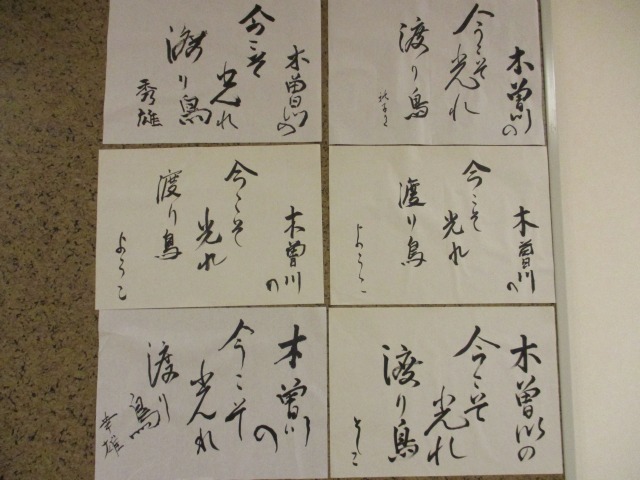 木曽川の
今こそ
光れ
渡り鳥
木曽川の
今こそ
光れ
渡り鳥
秀雄
木曽川の
今こそ
光れ
渡り鳥
ようこ
木曽川の
今こそ
光れ
渡り鳥
ようこ
木曽川の
今こそ
光れ
渡り鳥
木曽川の
今こそ
光れ
渡り鳥
幸雄